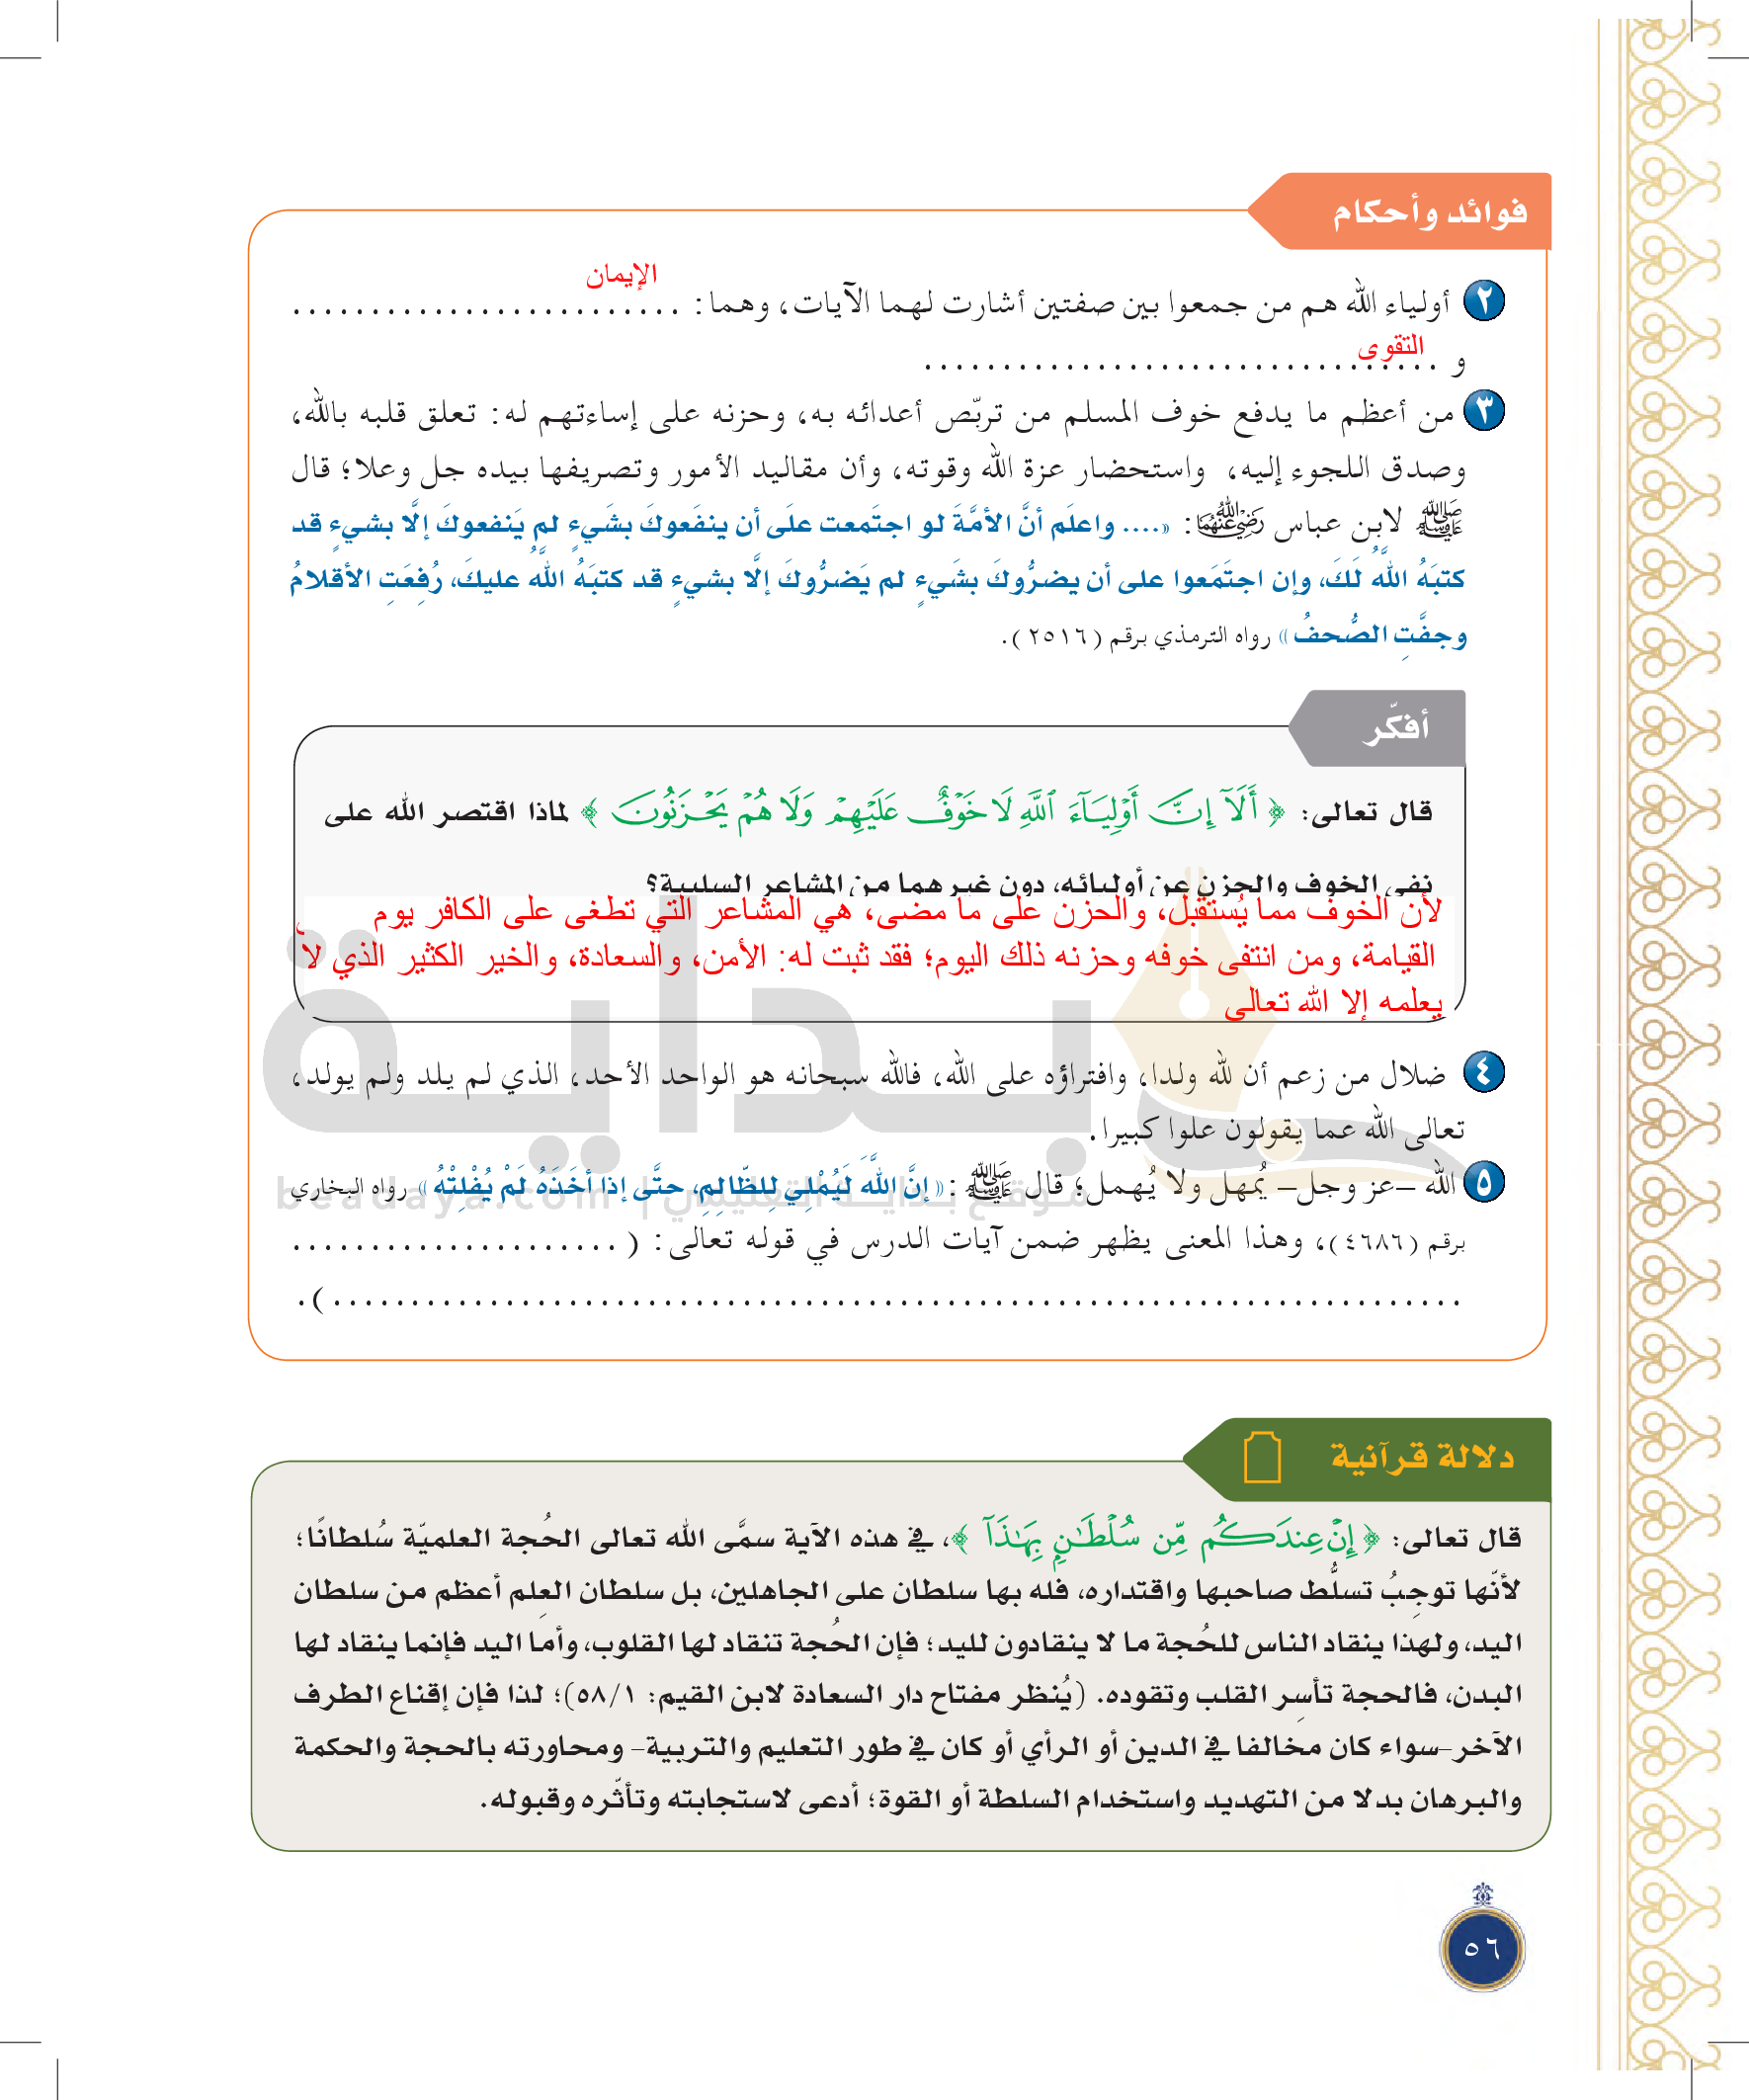 فوائد وأحكام
الإيمان
٢ أولياء الله هم من جمعوا بين صفتين أشارت لهما الآيات، وهما: .........................
التقوى
و .................................
٣ من أعظم ما يدفع خوف المسلم من تربّص أعدائه به، وحزنه على إساءتهم له: تعلق قلبه بالله،
وصدق اللجوء إليه، واستحضار عزة الله وقوته، وأن مقاليد الأمور وتصريفها بيده جل وعلا؛ قال
ﷺ لابن عباس رَضِيَ اللَّهُ عَنْهُمَا: «.... واعلَم أنَّ الأمَّةَ لو اجتَمعت علَى أن ينفَعوكَ بشَيءٍ لم يَنفعوكَ إلَّا بشيءٍ قد
كتبَهُ اللَّهُ لَكَ، وإن اجتَمَعوا على أن يضرُّوكَ بشَيءٍ لم يَضرُّوكَ إلَّا بشيءٍ قد كتبَهُ اللَّهُ عليكَ، رُفِعَتِ الأقلامُ
وجفَّتِ الصُّحفُ» رواه الترمذي برقم (٢٥١٦).
أفكّر
قال تعالى: ﴿ أَلَآ إِنَّ أَوْلِيَآءَ ٱللَّهِ لَا خَوْفٌ عَلَيْهِمْ وَلَا هُمْ يَحْزَنُونَ ﴾ لماذا اقتصر الله على
نفي الخوف والحزن عن أوليائه، دون غيرهما من المشاعر السلبية؟
لأن الخوف مما يُستقبل، والحزن على ما مضى، هي المشاعر التي تطغى على الكافر يوم
القيامة، ومن انتفى خوفه وحزنه ذلك اليوم؛ فقد ثبت له: الأمن، والسعادة، والخير الكثير الذي لا
يعلمه إلا الله تعالى
٤ ضلال من زعم أن لله ولدا، وافتراؤه على الله، فالله سبحانه هو الواحد الأحد، الذي لم يلد ولم يولد،
تعالى الله عما يقولون علوا كبيرا.
٥ الله –عز وجل– يُمهل ولا يُهمل؛ قال ﷺ: «إنَّ اللَّهَ لَيُمْلِي لِلظّالِمِ، حتَّى إذا أخَذَهُ لَمْ يُفْلِتْهُ» رواه البخاري
برقم (٤٦٨٦)، وهذا المعنى يظهر ضمن آيات الدرس في قوله تعالى: ( .....................
.........................................................................).
بداية
موقع بداية التعليمي | beadaya.com
دلالة قرآنية
قال تعالى: ﴿ إِنْ عِندَكُم مِّن سُلْطَٰنٍۭ بِهَٰذَآ ﴾، في هذه الآية سمَّى الله تعالى الحُجة العلميّة سُلطانًا؛
لأنّها توجِبُ تسلُّط صاحبها واقتداره، فله بها سلطان على الجاهلين، بل سلطان العِلم أعظم من سلطان
اليد، ولهذا ينقاد الناس للحُجة ما لا ينقادون لليد؛ فإن الحُجة تنقاد لها القلوب، وأما اليد فإنما ينقاد لها
البدن، فالحجة تأسِر القلب وتقوده. (يُنظر مفتاح دار السعادة لابن القيم: ٥٨/١)؛ لذا فإن إقناع الطرف
الآخر–سواء كان مخالفا في الدين أو الرأي أو كان في طور التعليم والتربية– ومحاورته بالحجة والحكمة
والبرهان بدلا من التهديد واستخدام السلطة أو القوة؛ أدعى لاستجابته وتأثّره وقبوله.
٥٦